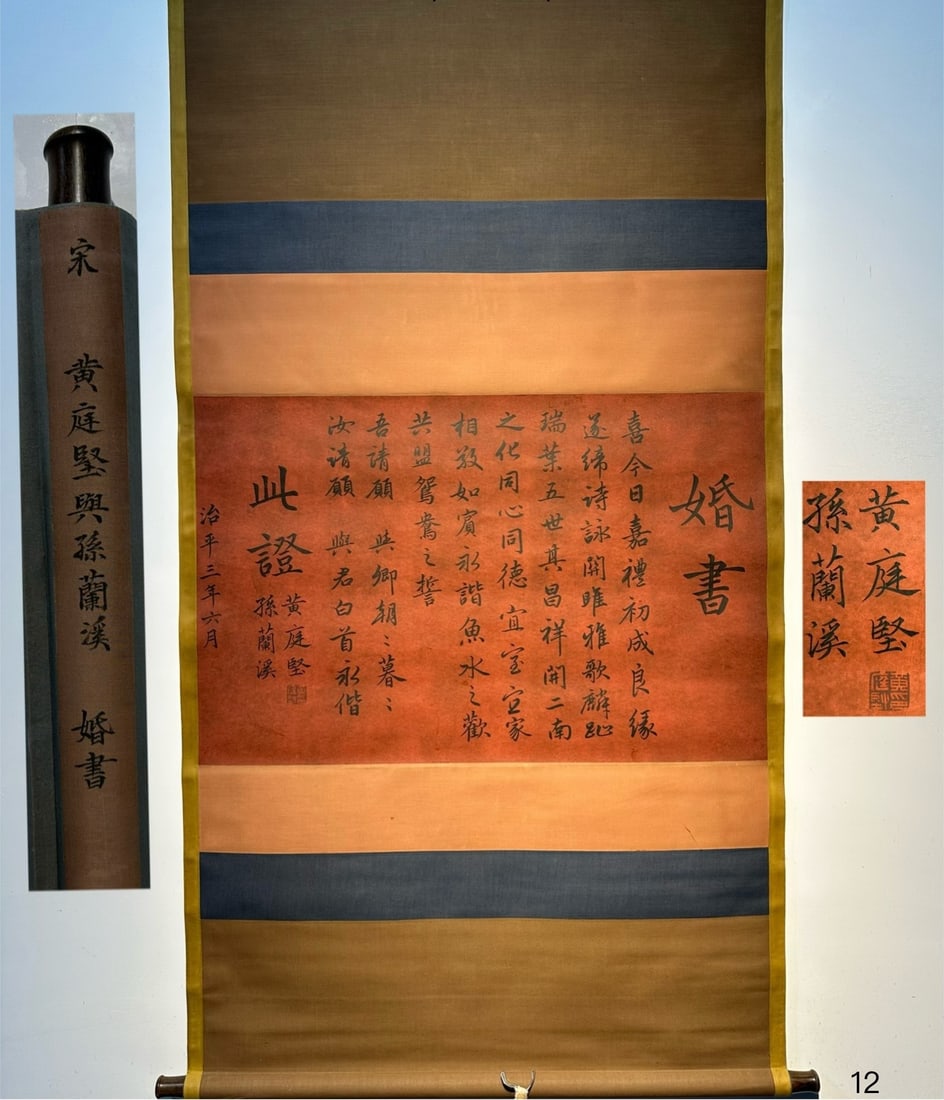 宋 黄庭堅與孫蘭溪 婚書
婚書
喜今日嘉禮初成良緣
遂締詩詠關雎雅歌麟趾
瑞葉五世其昌祥開二南
之化同心同德宜室宜家
相敬如賓永諧魚水之歡
共盟鴛鴦之誓
吾請願 與卿朝〻暮〻
汝請願 與君白首永偕
此證
黄庭堅
孫蘭溪
治平三年六月
黄庭堅
孫蘭溪
12